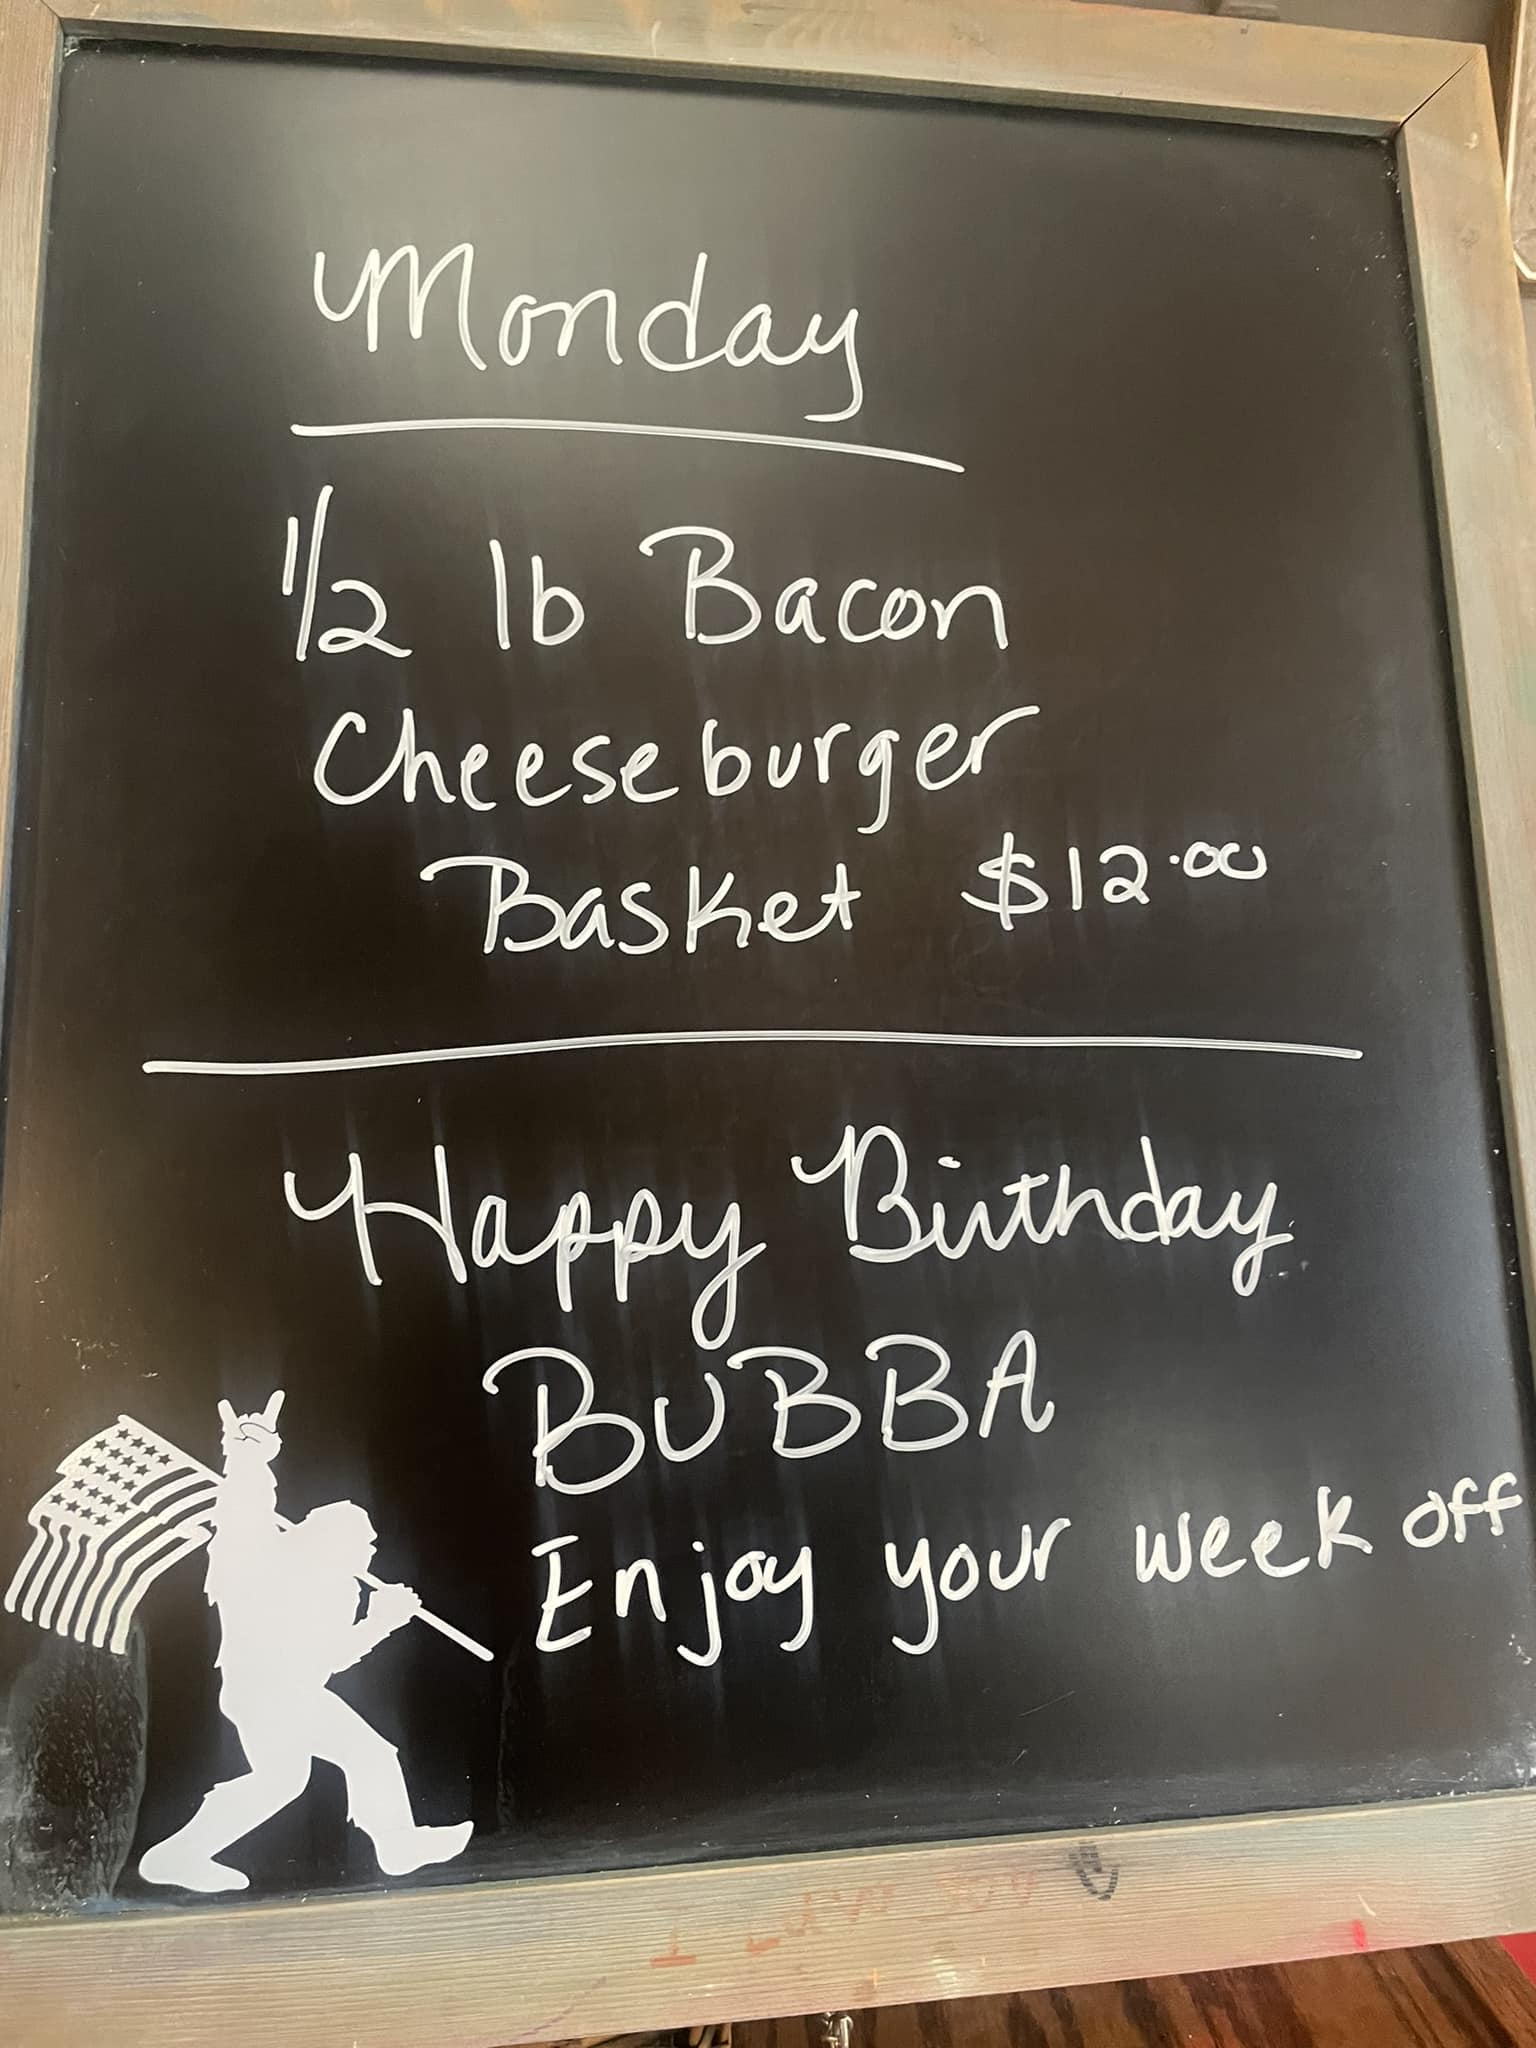 Monday
1/2 lb Bacon
Cheeseburger
Basket $12.00
Happy Birthday
BUBBA
Enjoy your week off